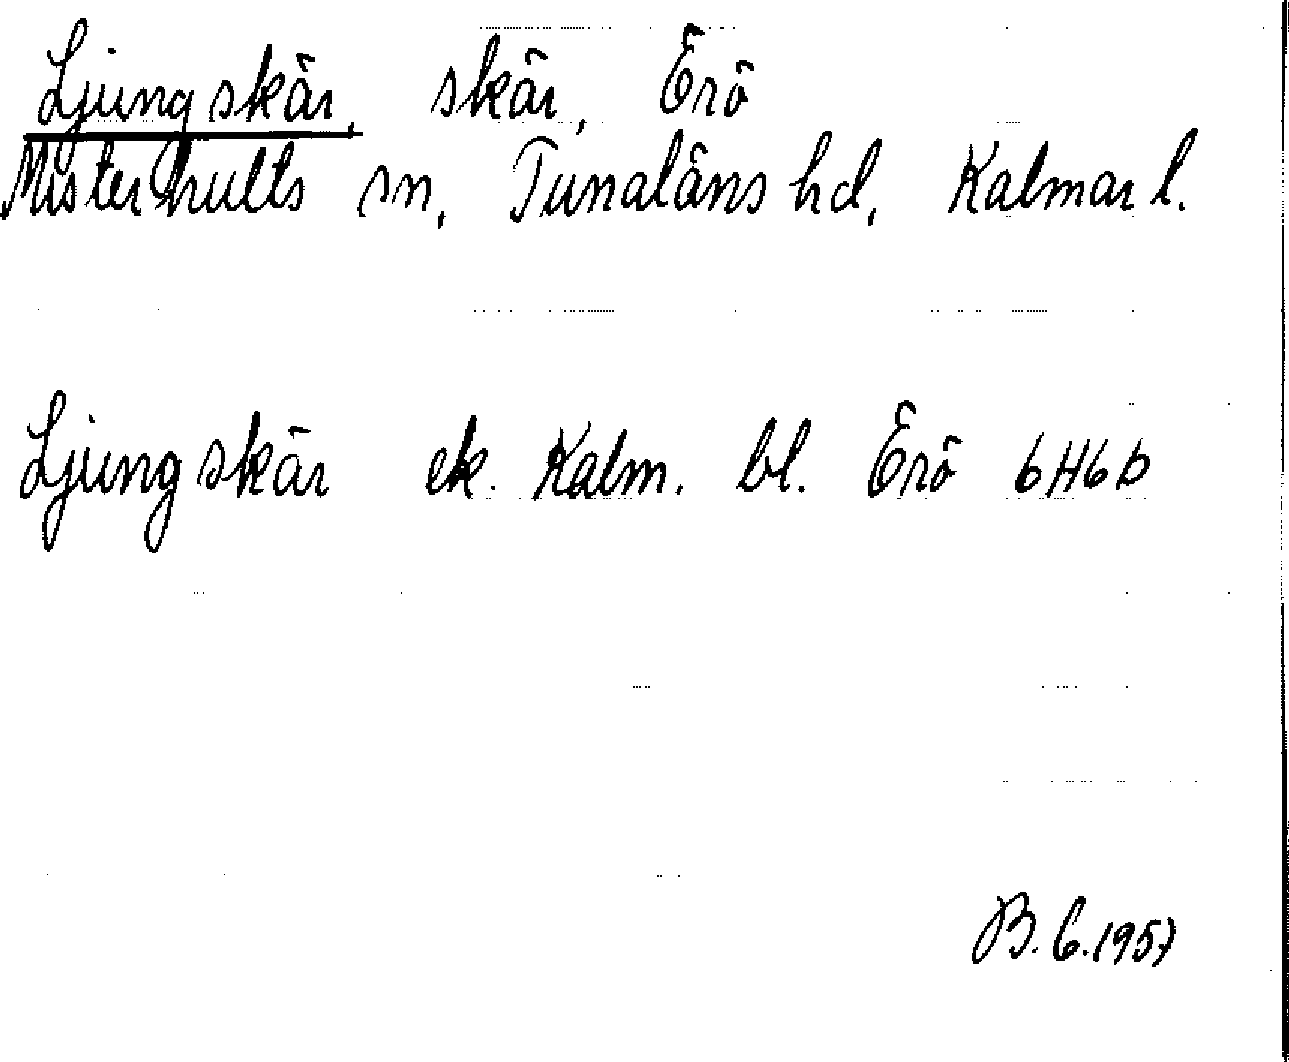 Ljungskär, skär, Örö
Misterhults sn, Tunaläns hd, Kalmar l.
Ljungskär ek. Kalm. bl. Örö 6H6b
B. G. 1957